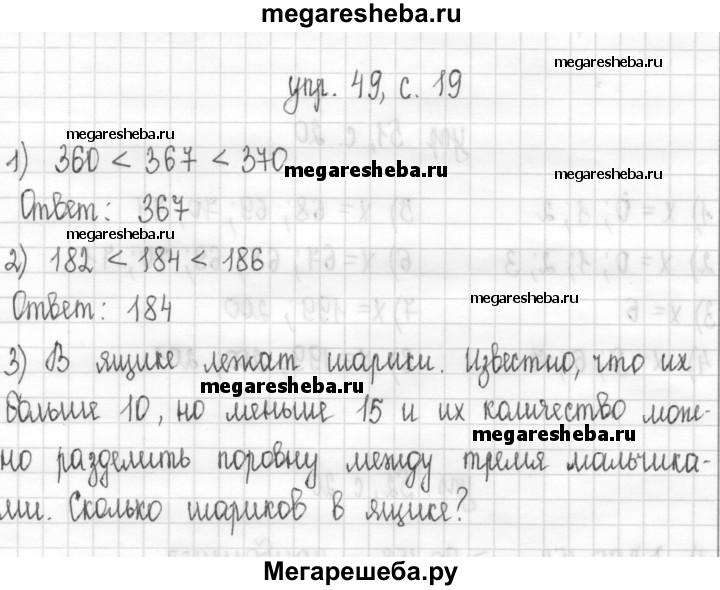 megaresheba.ru
megaresheba.ru
упр. 49, с. 19
megaresheba.ru
1) 360 < 367 < 370
megaresheba.ru
megaresheba.ru
Ответ: 367
megaresheba.ru
2) 182 < 184 < 186
megaresheba.ru
Ответ: 184
3) В ящике лежат шарики. Известно, что их
megaresheba.ru
больше 10, но меньше 15 и их количество мож-
megaresheba.ru
но разделить поровну между тремя мальчика-
ми. Сколько шариков в ящике?
Мегарешеба.ру